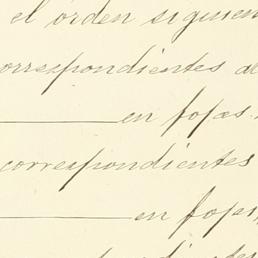 el órden siguien
orrespondientes al
en fojas
correspondientes
en fojas